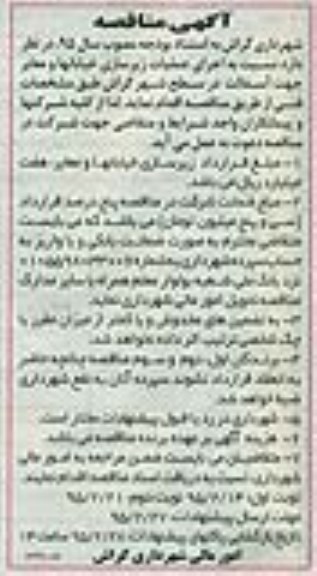 آگهی مناقصه
شهرداری گراش به استناد بودجه مصوب سال ۹۵ در نظر
دارد نسبت به اجرای عملیات زیرسازی خیابانها و معابر
جهت آسفالت در سطح شهر گراش طبق مشخصات
فنی از طریق مناقصه اقدام نماید. لذا از کلیه شرکتها
و پیمانکاران واجد شرایط و متقاضی جهت شرکت در
مناقصه دعوت به عمل می آید.
۱- مبلغ قرارداد زیرسازی خیابانها و معابر هفت
میلیارد ریال می باشد.
۲- مبلغ ضمانت شرکت در مناقصه پنج درصد قرارداد
(سی و پنج میلیون تومان) می باشد که می بایست
متقاضی محترم به صورت ضمانت بانکی و یا واریز به
حساب سپرده شهرداری به شماره
نزد بانک ملی شعبه بولوار معلم همراه با سایر مدارک
مناقصه تحویل امور مالی شهرداری نماید.
۳- به تضمین های مخدوش و یا کمتر از میزان مقرر یا
چک شخصی ترتیب اثر داده نخواهد شد.
۴- برندگان اول، دوم و سوم مناقصه چنانچه حاضر
به انعقاد قرارداد نشوند سپرده آنان به نفع شهرداری
ضبط خواهد شد.
۵- شهرداری در رد یا قبول پیشنهادات مختار است.
۶- هزینه آگهی بر عهده برنده مناقصه می باشد.
۷- متقاضیان می بایست ضمن مراجعه به امور مالی
شهرداری، نسبت به دریافت اسناد مناقصه اقدام نمایند.
نوبت اول: ۹۵/۲/۱۴ نوبت دوم: ۹۵/۲/۲۱
مهلت ارسال پیشنهادات: ۹۵/۲/۲۷
تاریخ بازگشایی پاکتهای پیشنهادات: ۹۵/۲/۲۸ ساعت ۱۴
امور مالی شهرداری گراش